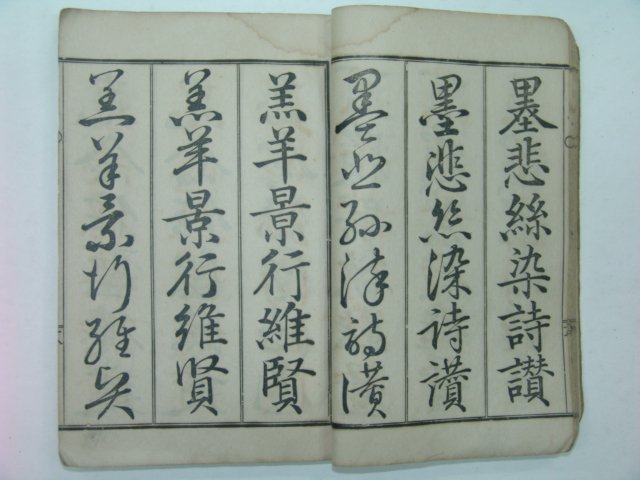 墨悲絲染詩讃
墨悲絲染詩讃
墨悲絲染詩讃
羔羊景行維賢
羔羊景行維賢
羔羊景行維賢